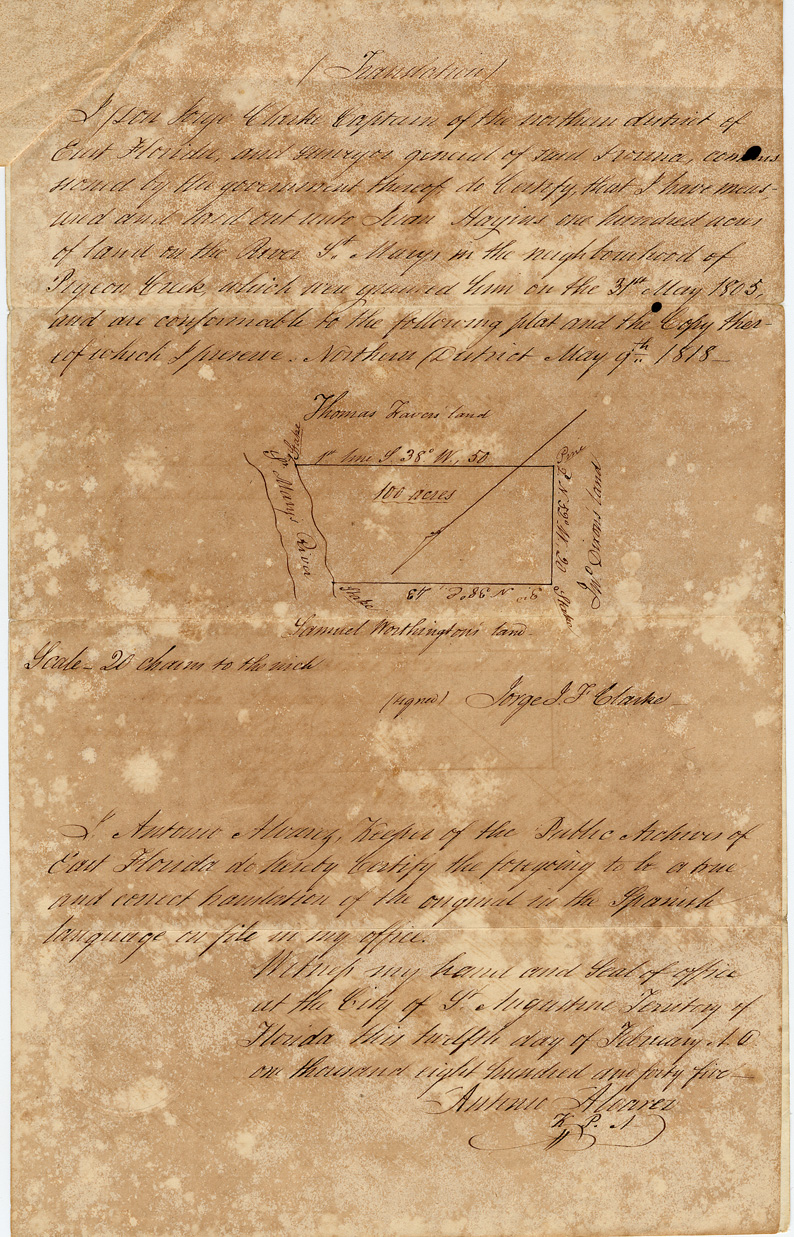 (Translation)
I Don Jorge Clarke Captain of the northern district of
East Florida, and surveyor general of said Province, commis
sioned by the government thereof do Certify that I have meas-
ured and laid out unto Juan Hagins one hundred acres
of land on the River St. Marys in the neighbourhood of
Pigeon Creek, which were granted him on the 31st May 1805,
and are conformable to the following plat and the Copy ther-
eof which I preserve. Northern District May 9th 1818—
Thomas Traven land
Stake
1st line S 38° W, 50
Pine
100 acres
St Marys River
2d N 52° W, 20
Jno Dixons land
Stake
3d N 38° E, 43
Stake
Samuel Worthington's land
Scale - 20 chains to the inch
(signed) Jorge J. F. Clarke
I Antonio Alvarez, Keeper of the Public Archives of
East Florida do hereby Certify the foregoing to be a true
and correct translation of the original in the Spanish
language on file in my office.
Witness my hand and Seal of office
at the City of St. Augustine Territory of
Florida this twelfth day of February A. D
one thousand eight hundred and forty five—
Antonio Alvarez
K. P. A